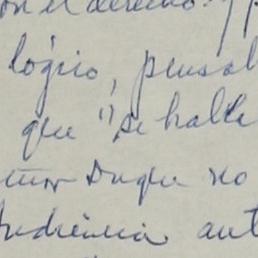 en el derecho. y p
lógico, pensab
que "se halle
Duque no
ant